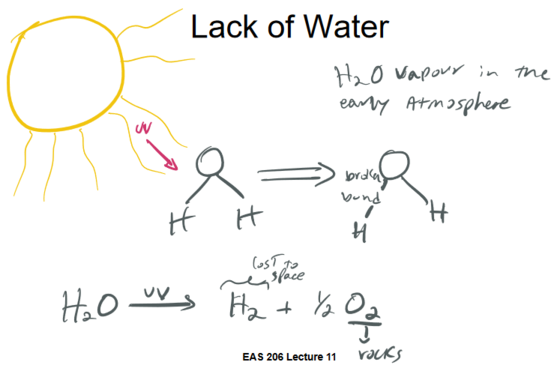 Lack of Water
H₂O vapour in the
early Atmosphere
UV
O
H H
broken
bond
O
H
H
lost to
space
H₂O UV → H₂ + ½ O₂
rocks
EAS 206 Lecture 11